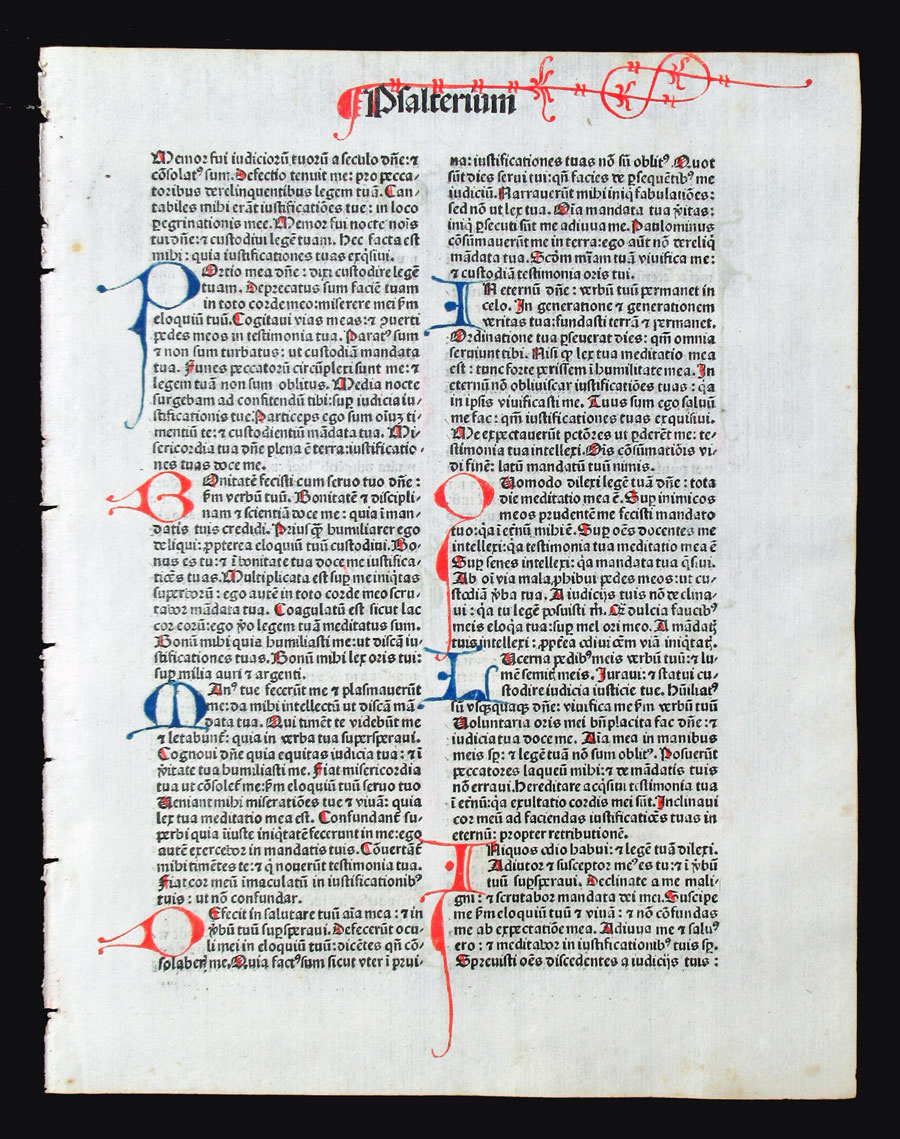 Psalterium
Memor fui iudiciorū tuorū a seculo dn̄e: ⁊
cōsolatꝰ sum. Defectio tenuit me: pro pecca-
toribus derelinquentibus legem tuā. Can-
tabiles mihi erāt iustificatiōes tue: in loco
ꝑegrinationis mee. Memor fui nocte noīs
tui dn̄e: ⁊ custodiui legē tuam. Hec facta est
mihi: quia iustificationes tuas exq̄siui.
POrtio mea dn̄e: dixi custodire legē
tuam. Deprecatus sum faciē tuam
in toto corde meo: miserere mei ẜm
eloquiū tuū. Cogitaui vias meas: ⁊ ꝯuerti
pedes meos in testimonia tua. Paratꝰ sum
⁊ non sum turbatus: ut custodiā mandata
tua. Funes peccatorū circūplexi sunt me: ⁊
legem tuā non sum oblitus. Media nocte
surgebam ad confitendū tibi: suꝑ iudicia iu-
stificationis tue. Particeps ego sum oīuꝫ ti-
mentiū te: ⁊ custodientiū mādata tua. Mi-
sericordia tua dn̄e plena ē terra: iustificatio-
nes tuas doce me.
BOnitatē fecisti cum seruo tuo dn̄e:
ẜm verbū tuū. Bonitatē ⁊ discipli-
nam ⁊ scientiā doce me: quia ī man-
datis tuis credidi. Priusꝙ̄ humiliarer ego
deliqui: ꝓpterea eloquiū tuū custodiui. Bo-
nus es tu: ⁊ ī bonitate tua doce me iustifica-
tiōes tuas. Multiplicata est suꝑ me iniq̄tas
superborū: ego autē in toto corde meo scru-
tabor mādata tua. Coagulatū est sicut lac
cor eorū: ego ꝟo legem tuā meditatus sum.
Bonū mihi quia humiliasti me: ut discā iu-
stificationes tuas. Bonū mihi lex oris tui:
suꝑ milia auri ⁊ argenti.
MAnꝰ tue fecerūt me ⁊ plasmauerūt
me: da mihi intellectū ut discā mā-
data tua. Qui timēt te videbūt me
⁊ letabunt̄: quia in verba tua supersperaui.
Cognoui dn̄e quia equitas iudicia tua: ⁊ ī
ꝟitate tua humiliasti me. Fiat misericordia
tua ut cōsolet̄ me: ẜm eloquiū tuū seruo tuo
Ueniant mihi miseratiōes tue ⁊ viuā: quia
lex tua meditatio mea est. Confundant̄ su-
perbi quia iīuste iniq̄tatē fecerunt in me: ego
autē exercebor in mandatis tuis. Cōuertāt̄
mihi timētes te: ⁊ q̄ nouerūt testimonia tua.
Fiat cor meū īmaculatū in iustificationibꝰ
tuis: ut nō confundar.
DEfecit in salutare tuū aīa mea: ⁊ in
ꝟbū tuū suꝑsperaui. Defecerūt ocu-
li mei in eloquiū tuū: dicētes qn̄ cō-
solaberꝭ me. Quia factꝰ sum sicut vter ī prui-
na: iustificationes tuas nō sū oblitꝰ. Quot
sūt dies serui tui: qn̄ facies de ꝑsequētibꝰ me
iudiciū. Narrauerūt mihi iniq̄ fabulatiōes:
sed nō ut lex tua. Oīa mandata tua ꝟitas:
iniq̄ ꝑsecuti sūt me adiuua me. Paulominus
cōsūmauerūt me in terra: ego aūt nō dereliq̄
mādata tua. Scd̄m m̄iam tuā viuifica me:
⁊ custodiā testimonia oris tui.
IN eternū dn̄e: verbū tuū permanet in
celo. In generatione ⁊ generationem
veritas tua: fundasti terrā ⁊ permanet.
Ordinatione tua ꝑseuerat dies: qm̄ omnia
seruiunt tibi. Nisi ꝙ lex tua meditatio mea
est: tunc forte perissem ī humilitate mea. In
eternū nō obliuiscar iustificatiōes tuas: q̄a
in ipsis viuificasti me. Tuus sum ego saluū
me fac: qm̄ iustificationes tuas exquisiui.
Me expectauerūt pctōres ut ꝑderēt me: te-
stimonia tua intellexi. Oīs cōsūmatiōis vi-
di finē: latū mandatū tuū nimis.
QUomodo dilexi legē tuā dn̄e: tota
die meditatio mea ē. Suꝑ inimicos
meos prudentē me fecisti mandato
tuo: q̄a ī et̄nū mihi ē. Suꝑ oēs docentes me
intellexi: q̄a testimonia tua meditatio mea ē
Suꝑ senes intellexi: q̄a mandata tua q̄siui.
Ab oī via mala ꝓhibui pedes meos: ut cu-
stodiā ꝟba tua. A iudicijs tuis nō declina-
ui: q̄a tu legē posuisti m̄. Q̄ dulcia faucibꝰ
meis eloq̄a tua: suꝑ mel ori meo. A mādatꝭ
tuis intellexi: ꝓpt̄ea odiui om̄ viā iniq̄tatꝭ.
LUcerna pedibꝰ meis verbū tuū: ⁊ lu-
mē semitꝭ meis. Iuraui: ⁊ statui cu-
stodire iudicia iusticie tue. Hūiliatꝰ
sū vsq̄quaq̄ dn̄e: viuifica me ẜm verbū tuū
Uoluntaria oris mei bn̄placita fac dn̄e: ⁊
iudicia tua doce me. Aīa mea in manibus
meis sꝑ: ⁊ legē tuā nō sum oblitꝰ. Posuerūt
peccatores laqueū mihi: ⁊ de mādatis tuis
nō erraui. Hereditate acq̄siui testimonia tua
ī et̄nū: q̄a exultatio cordis mei sūt. Inclinaui
cor meū ad faciendas iustificatiōes tuas in
eternū: propter retributionē.
INiquos odio habui: ⁊ legē tuā dilexi.
Adiutor ⁊ susceptor meꝰ es tu: ⁊ ī ꝟbū
tuū suꝑsperaui. Declinate a me mali-
gni: ⁊ scrutabor mandata dei mei. Suscipe
me ẜm eloquiū tuū ⁊ viuā: ⁊ nō cōfundas
me ab expectatiōe mea. Adiuua me ⁊ saluꝰ
ero: ⁊ meditabor in iustificationibꝰ tuis sꝑ.
Spreuisti oēs discedentes a iudicijs tuis: